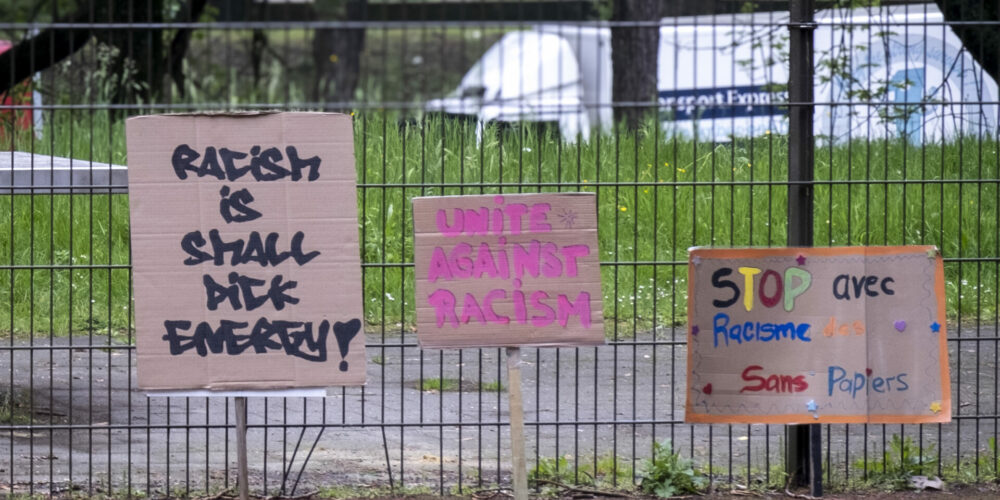 RACiSM
iS
SMALL
DiCK
ENERGY!
UNiTE
AGAiNST
RACISM
STOP avec
Racisme des
Sans Papiers